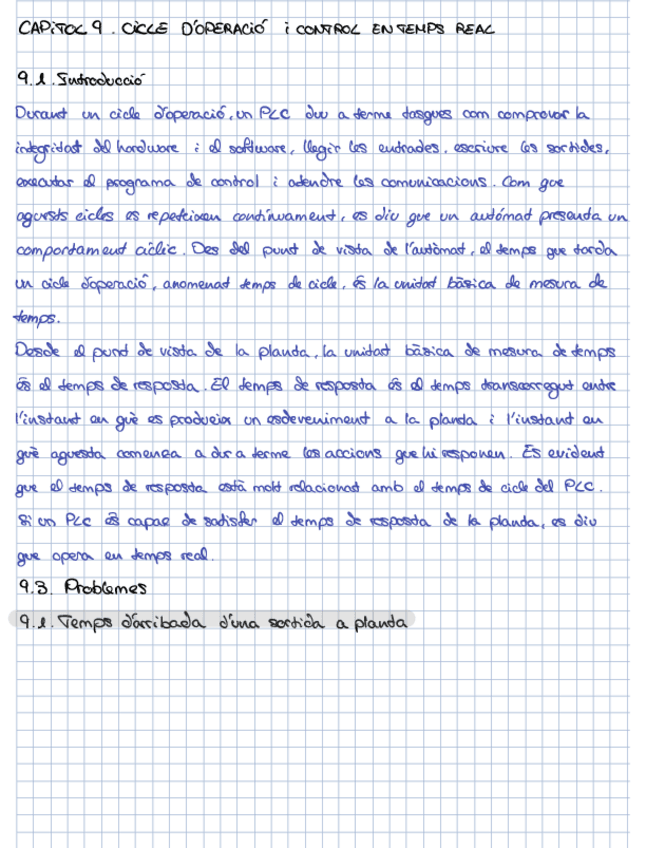 CAPÍTOL 9. CICLE D'OPERACIÓ i CONTROL EN TEMPS REAL
9.1. Introducció
Durant un cicle d'operació, un PLC duu a terme tasques com comprovar la
integritat del hardware i el software, llegir les entrades, escriure les sortides,
executar el programa de control i atendre les comunicacions. Com que
aquests cicles es repeteixen contínuament, es diu que un autómat presenta un
comportament cíclic. Des del punt de vista de l'autòmat, el temps que tarda
un cicle d'operació, anomenat temps de cicle, és la unitat bàsica de mesura de
temps.
Desde el punt de vista de la planta, la unitat bàsica de mesura de temps
és el temps de resposta. El temps de resposta és el temps transcorregut entre
l'instant en què es produeix un esdeveniment a la planta i l'instant en
què aquesta comença a dur a terme les accions que hi responen. És evident
que el temps de resposta està molt relacionat amb el temps de cicle del PLC.
Si un PLC és capaç de satisfer el temps de resposta de la planta, es diu
que opera en temps real.
9.3. Problemes
9.1. Temps d'arribada d'una sortida a planta